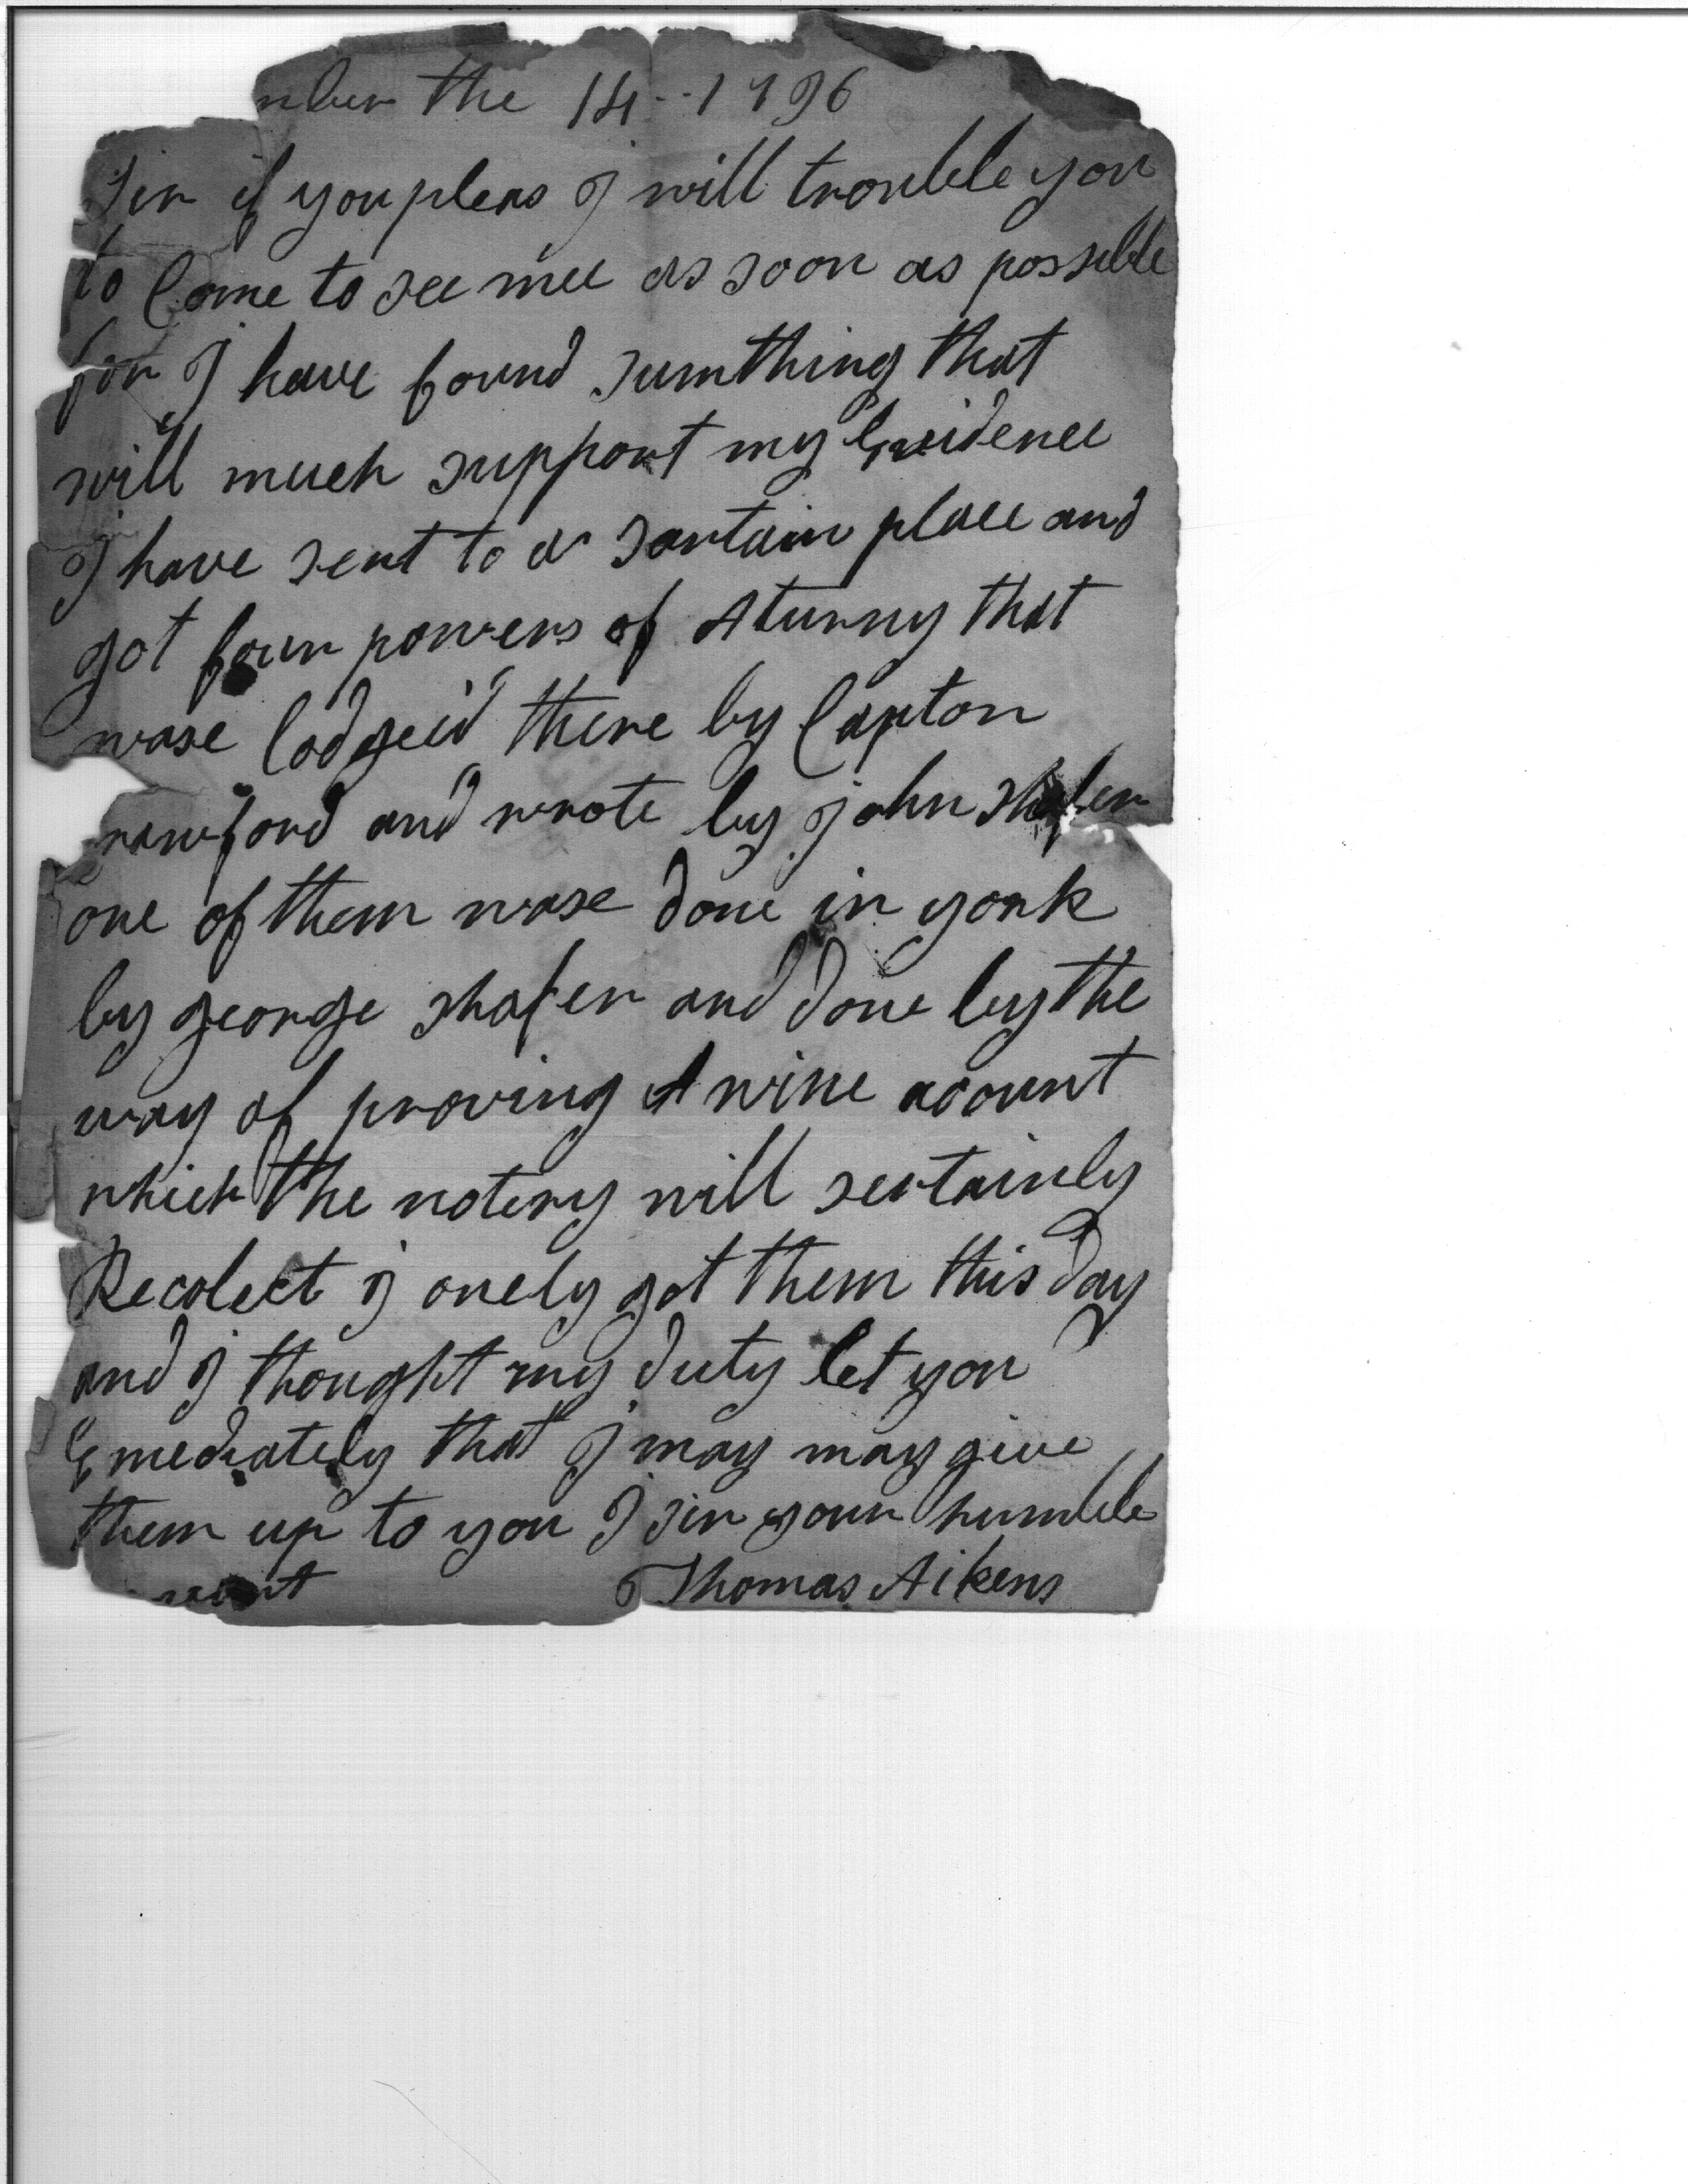 mber the 14--1796
Sir if you pleas I will trouble you
to Come to see mee as soon as possible
for I have found sumthing that
will much support my Evidence
I have sent to a sartain place and
got four powers of Aturny that
wase lodgeid there by Capton
rawford and wrote by john Shafer
one of them wase done in york
by george shafer and done by the
way of proving A wine acount
which the notery will sertainly
Recolect I onely got them this day
and I thought my duty let you
Emediately that I may may give
them up to you I sir your humble
Thomas Aikens